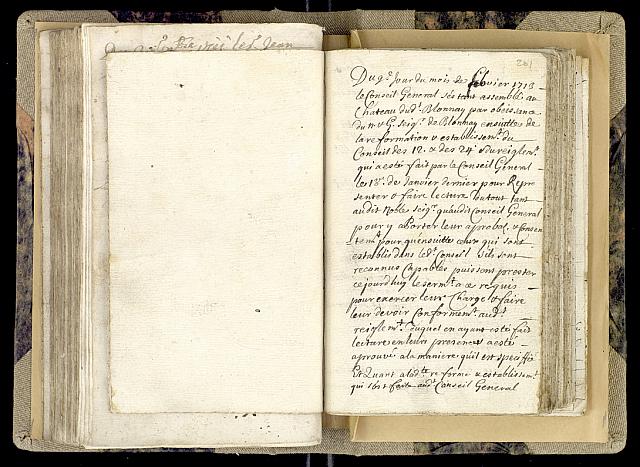 201
Du 9e Jour du mois de febvrier 1713
le Conseil General sestant assemblé au
Chateau dud.t Blonnay par obeissance
du n. & G. Seigr. de Blonnay ensuitte de
la reformation & establissemt. du
Conseil des 12. & des 24 & du reiglemt.
qui a esté fait par le Conseil General
les 18e. de Janvier dernier pour Repre
senter & faire lecture du tout tant
audit Noble Seigr. quaudit Conseil General
pour y aporter leur aprobat. & Consen
temt. pour quensuitte ceux qui sont
establis dans led.t Conseil sils sont
reconnus Capables puissent prester
cejourdhuy le sermt. a ce requis
pour exercer leur Charge & faire
leur devoir Conformemt. aud.t
reiglemt. duquel en ayant esté fait
lecture en leur presence a esté
aprouvé a la maniere quil est speciffié
Et Quant a lad.te reforme & establissemt.
qui sest faite aud.t Conseil General